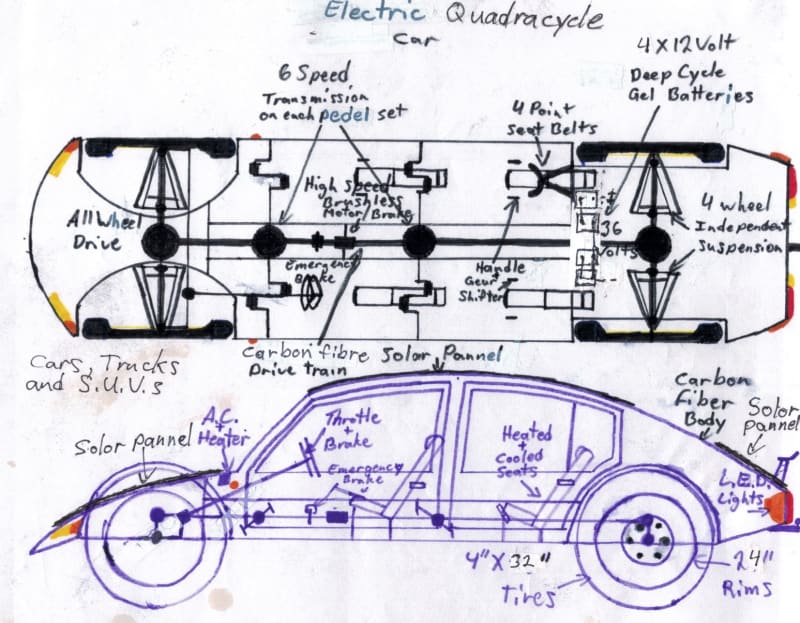 Electric Quadracycle
Car
4 X 12 Volt
Deep Cycle
Gel Batteries
6 Speed
Transmission
on each pedel set
4 Point
Seat Belts
High Speed
Brushless
Motor/Brake
All Wheel
Drive
4 wheel
Independent
Suspension
36
Volts
Emergency
Brake
Handle
Gear
Shifter
Carbon fibre
Drive train
Cars, Trucks
and S.U.V.s
Solor Pannel
Carbon
Fiber
Body
Solor
pannel
A.C.
+
Heater
Throttle
+
Brake
Solor pannel
Emergency
Brake
Heated
+
Cooled
Seats
L.E.D.
Lights
4" X 32"
Tires
24"
Rims